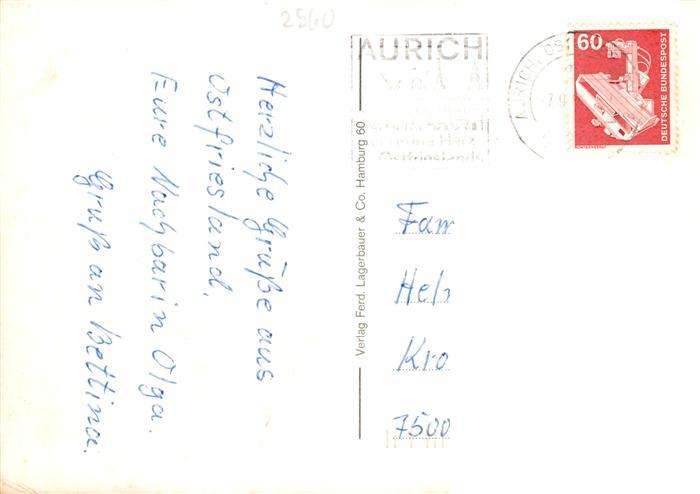 2560
AURICH
60
DEUTSCHE BUNDESPOST
AURICH, OST
Herzliche Grüße aus
Ostfriesland.
Eure Nachbarin Olga.
Gruß an Bettina.
Verlag Ferd. Lagerbauer & Co. Hamburg 60
Fam
Hel
Kro
7500